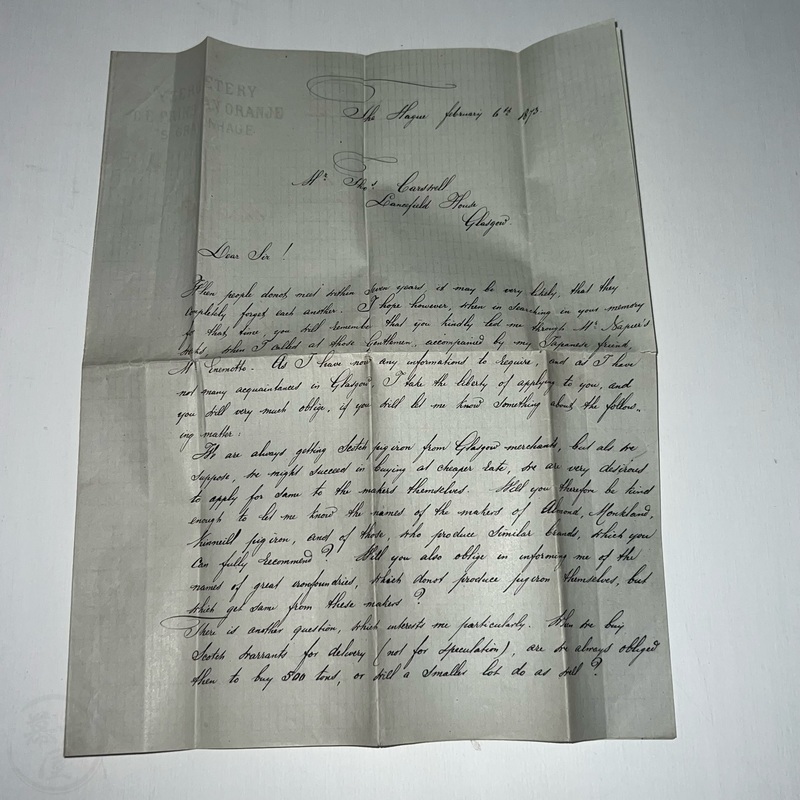 The Hague february 6th 1873.
Mr Thos Carswell
Lancefield House
Glasgow.
Dear Sir!
When people donot meet within seven years, it may be very likely, that they
completely forget each another. I hope however, when in searching in your memory
to that time, you will remember that you kindly led me through Mr Napier's
works when I called at those Gentlemen, accompanied by my Japanese friend,
Mr Enemotto. As I have now any informations to require, and as I have
not many acquaintances in Glasgow, I take the liberty of applying to you, and
you will very much oblige, if you will let me know something about the follow-
ing matter:
We are always getting Scotch pig iron from Glasgow merchants, but als we
suppose, we might succeed in buying at cheaper rate, we are very desirous
to apply for same to the makers themselves. Will you therefore be kind
enough to let me know the names of the makers of Almond, Monkland,
Kinneill pig iron, and of those, who produce similar brands, which you
can fully recommend? Will you also oblige in informing me of the
names of great ironfoundries, which donot produce pig iron themselves, but
which get same from these makers?
There is another question, which interests me particularly. When we buy
Scotch warrants for delivery (not for speculation), are we always obliged
then to buy 500 tons, or will a smaller lot do as well?